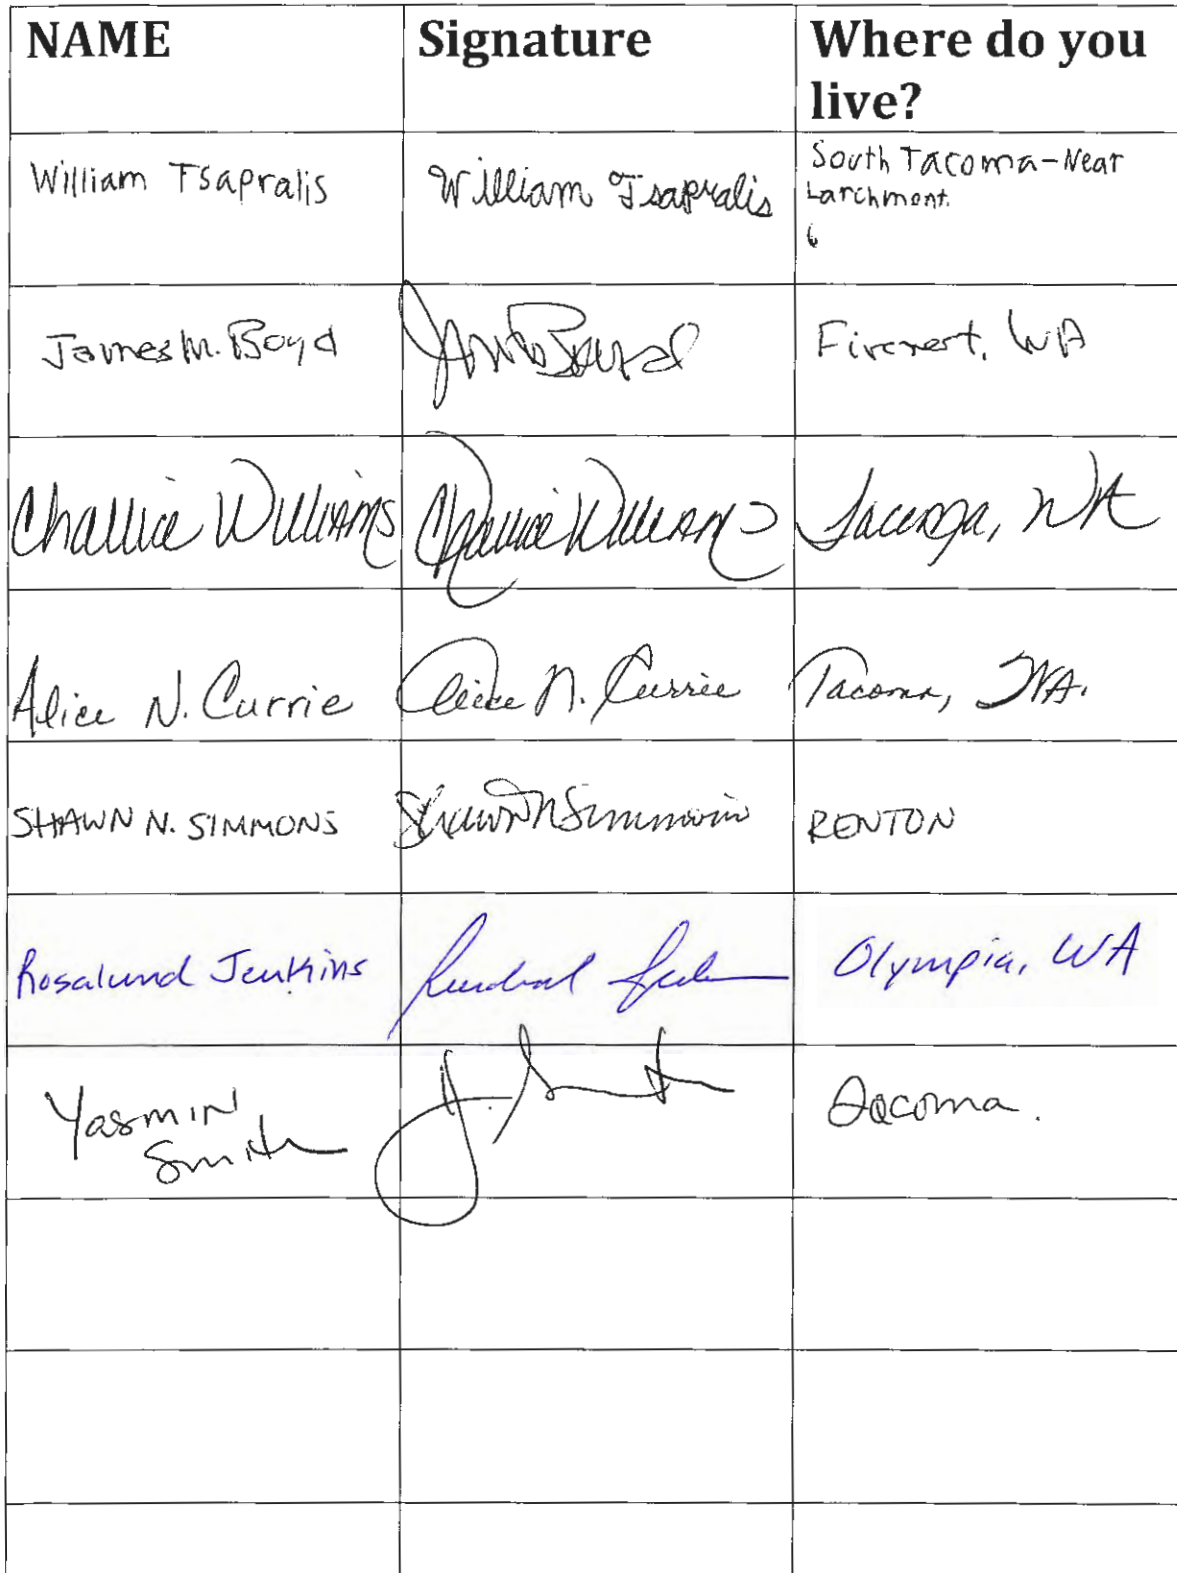 NAME Signature Where do you
live?
William Tsapralis William Tsapralis South Tacoma-Near
Larchmont.
James M. Boyd James Boyd Fircrest, WA
Challie Williams Challie Williams Tacoma, WA
Alice N. Currie Alice N. Currie Tacoma, WA.
SHAWN N. SIMMONS Shawn N Simmons RENTON
Rosalund Jenkins Olympia, WA
Yasmin Tacoma.
Smith